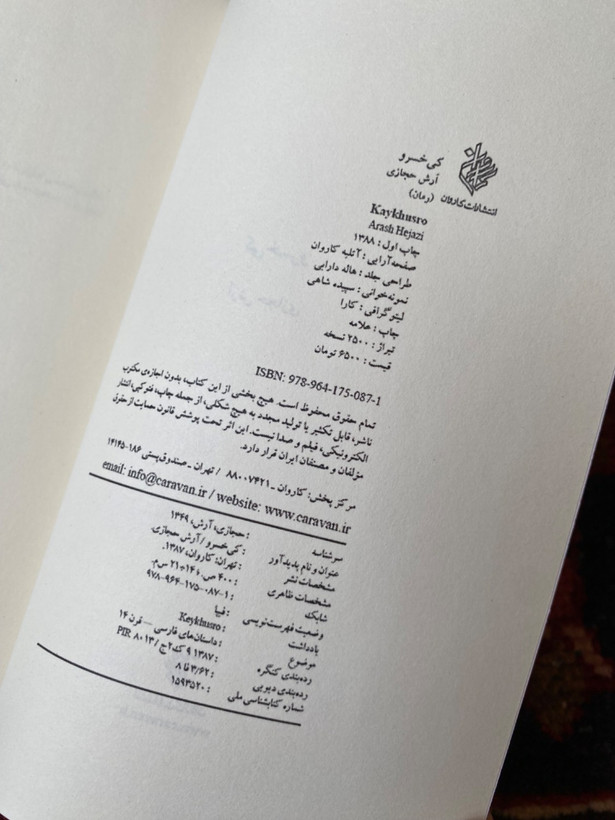 کی‌خسرو
آرش حجازی
(رمان)
انتشارات کاروان
Kaykhusro
Arash Hejazi
چاپ اول: ۱۳۸۸
صفحه‌آرایی: آتلیه کاروان
طراحی جلد: هاله دارابی
نمونه‌خوانی: سپیده شاهی
لیتوگرافی: کارا
چاپ: علامه
تیراژ: ۲۵۰۰ نسخه
قیمت: ۶۵۰۰ تومان
ISBN: 978-964-175-087-1
تمام حقوق محفوظ است. هیچ بخشی از این کتاب، بدون اجازه‌ی مکتوب
ناشر، قابل تکثیر یا تولید مجدد به هیچ شکلی، از جمله چاپ، فتوکپی، انتشار
الکترونیکی، فیلم و صدا نیست. این اثر تحت پوشش قانون حمایت از حقوق
مؤلفان و مصنفان ایران قرار دارد.
مرکز پخش: کاروان ـ ۸۸۰۰۷۴۲۱ / تهران ـ صندوق پستی ۱۸۶-۱۴۱۴۵
email: info@caravan.ir / website: www.caravan.ir
سرشناسه : حجازی، آرش، ۱۳۴۹
عنوان و نام پدیدآور : کی‌خسرو / آرش حجازی.
مشخصات نشر : تهران: کاروان، ۱۳۸۷.
مشخصات ظاهری : ۴۰۰ ص.
شابک : ۱-۰۸۷-۱۷۵-۹۶۴-۹۷۸
وضعیت فهرست‌نویسی : فیپا
یادداشت : Keykhusro
موضوع : داستان‌های فارسی — قرن ۱۴
رده‌بندی کنگره : ۱۳۸۷ ۹ک۲ج/ PIR ۸۰۱۳
رده‌بندی دیویی : ۸فا۳/۶۲
شماره کتابشناسی ملی : ۱۵۹۳۵۲۰